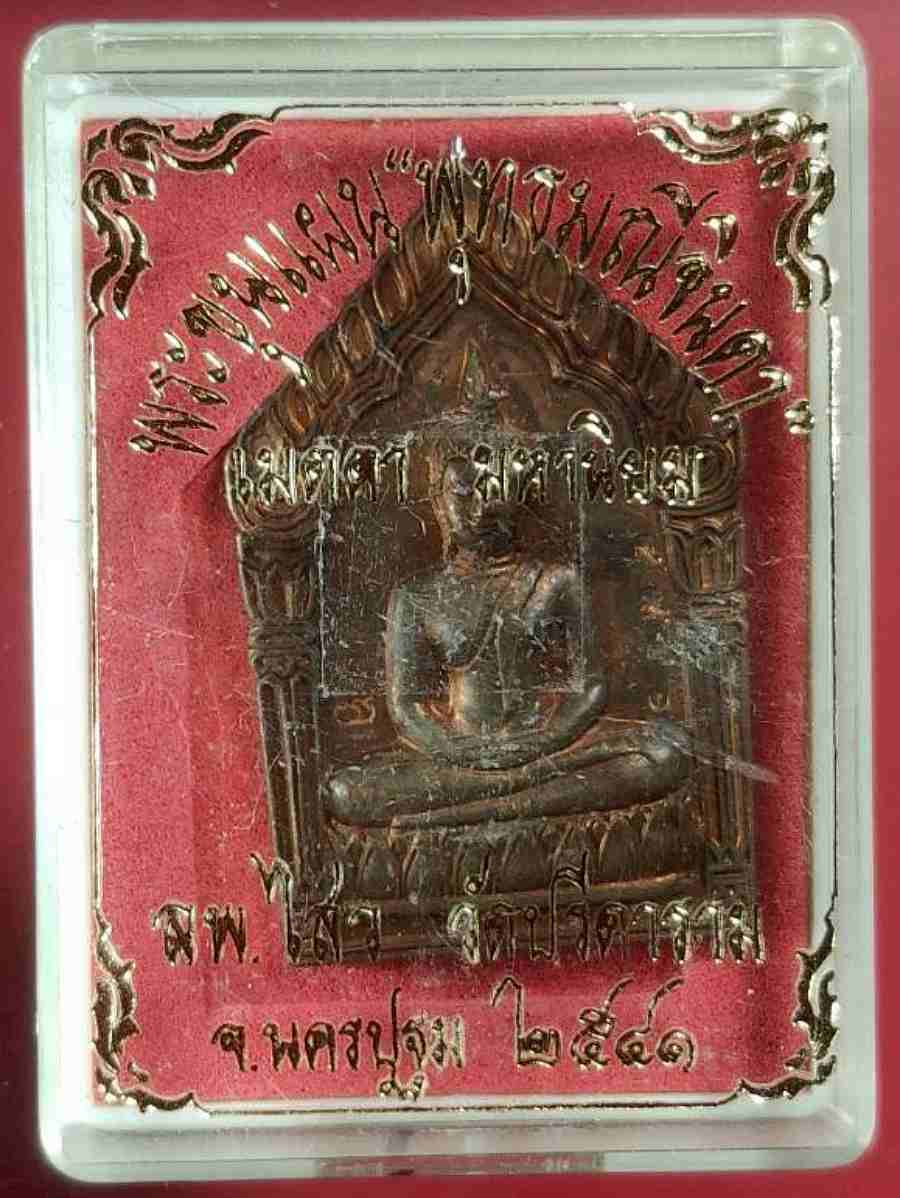 พระขุนแผน "พุทธมณีจินดา"
เมตตา มหานิยม
ลพ.ไสว วัดปรีดาราม
จ.นครปฐม ๒๕๔๑